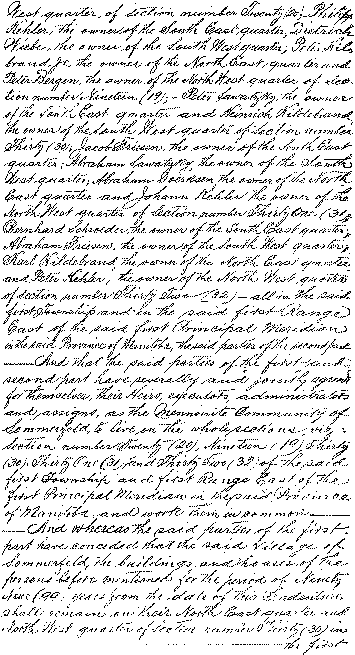 West quarter of section number Twenty (20; Philipp
Kehler, the owner of the South East quarter,
Wiebe, the owner of the South West quarter, Peter Hilde
brand, the owner of the North East quarter and
Peter Bergen, the owner of the North West quarter of sec-
tion number Nineteen (19); – Peter Sawatzky, the owner
of the South East quarter and Heinrich Hildebrand,
the owner of the South West quarter of section number
Thirty (30), Jacob Friesen, the owner of the South East
quarter, Abraham Sawatzky, the owner of the South
West quarter, Abraham Doerksen, the owner of the North
East quarter and Johann Kehler the owner of the
North West quarter of section number Thirty One (31;
Bernhard Schroeder, the owner of the South East quarter,
Abraham Friesen, the owner of the South West quarter,
Karl Hildebrand the owner of the North East quarter
and Peter Kehler, the owner of the North West quarter
of section number Thirty Two (32) – all in the said
first Township and in the said first Range
East of the said first Principal Meridian
in the said Province of Manitoba, the said parties of the second part
And that the said parties of the first and
second part have severally and jointly agreed
for themselves, their Heirs, executors, administrators
and assigns, as the Mennonite Community of
Sommerfeld, to live on the whole sections, viz,
section number Twenty (20), Nineteen (19) Thirty
(30) Thirty One (31) and Thirty Two (32) of the said
first Township and first Range East of the
first Principal Meridian in the said Province
of Manitoba, and work them in common
And whereas the said parties of the first
part have conceded that the said Village of
Sommerfeld, the buildings, and the uses of the
persons before mentioned for the period of Ninety
Nine (99) years from the date of this Indenture
shall remain on their North East quarter and
North West quarter of section number Thirty (30) in
the first